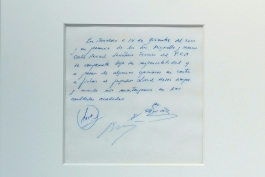 En Barcelona a 14 de Diciembre del 2000
y en presencia de los Srs. Minguella y Horacio
Carles Rexach Secretario Técnico del F.C.B.
se compromete bajo su responsabilidad y
a pesar de algunas opiniones en contra
a fichar al jugador Lionel Messi siempre
y cuando nos mantengamos en las
cantidades acordadas